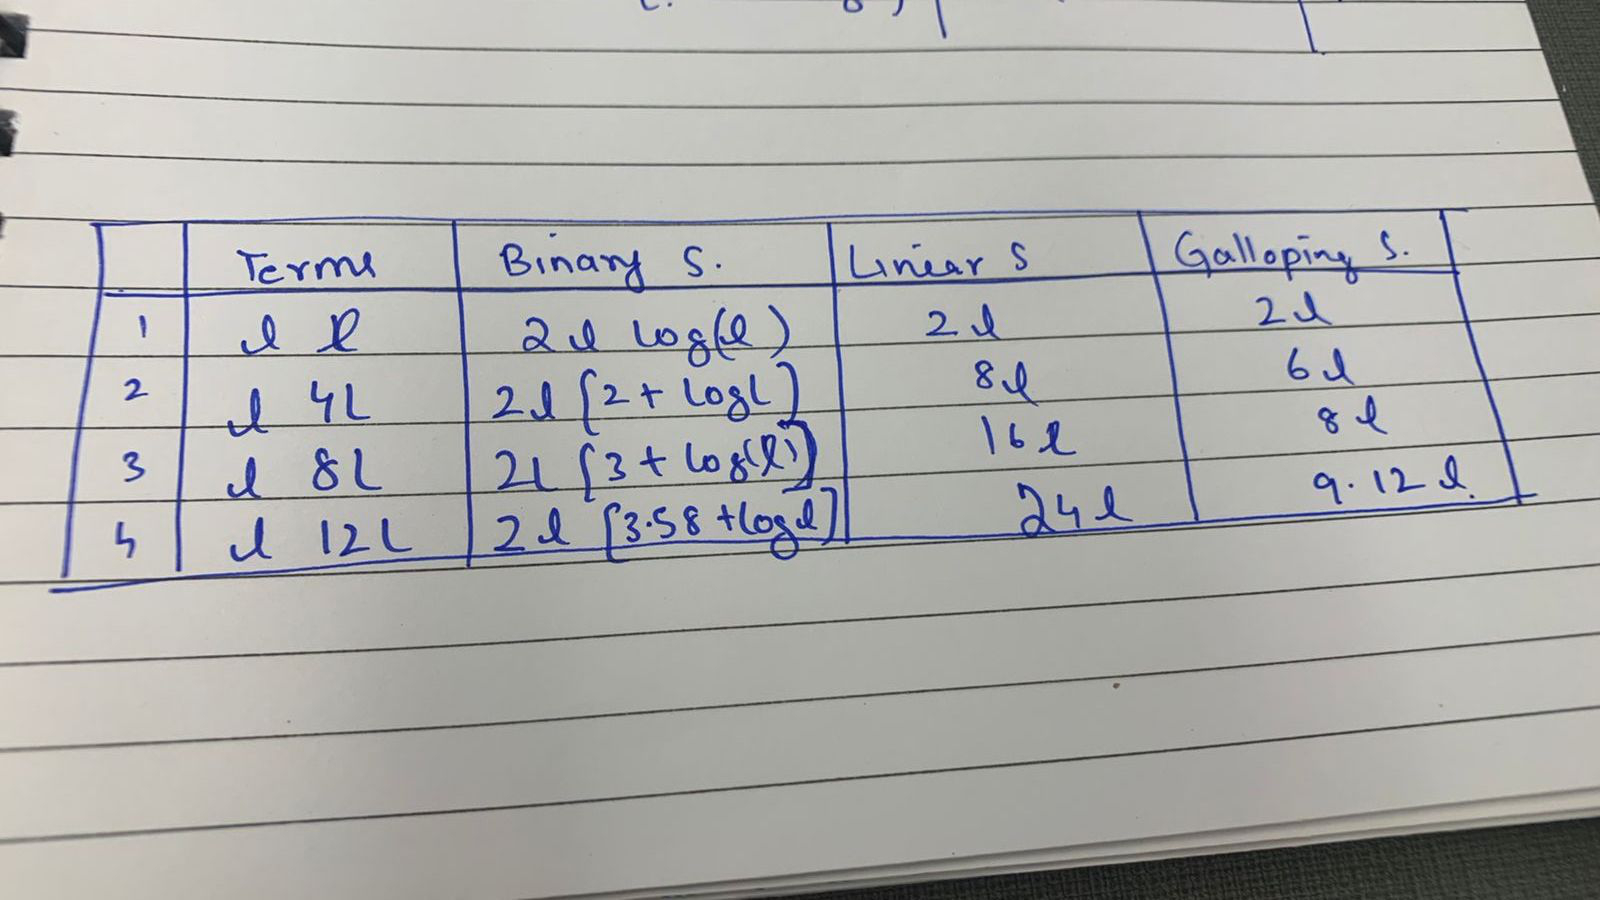 Terms Binary S. Linear S Galloping S.
1 l l 2l log(l) 2l 2l
2 l 4L 2l [2 + logL] 8l 6l
3 l 8L 2L [3 + log(l)] 16l 8l
4 l 12L 2l [3.58 + logl] 24l 9.12 l.